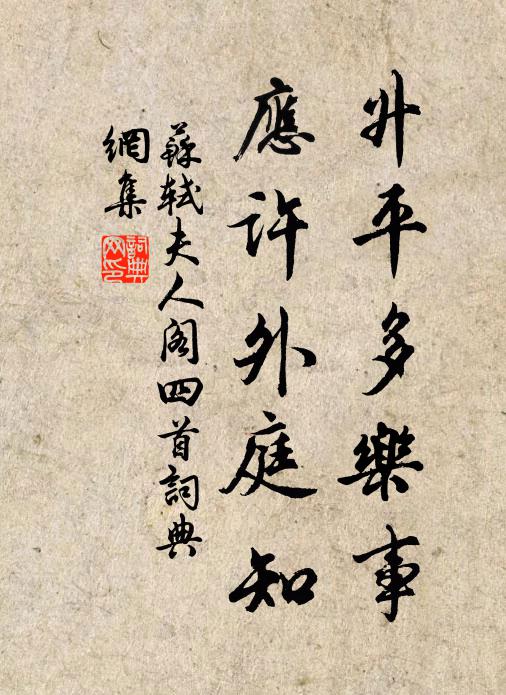 升平多樂事
應許外庭知
蘇軾夫人阁四首詞典
網集
詞典网印